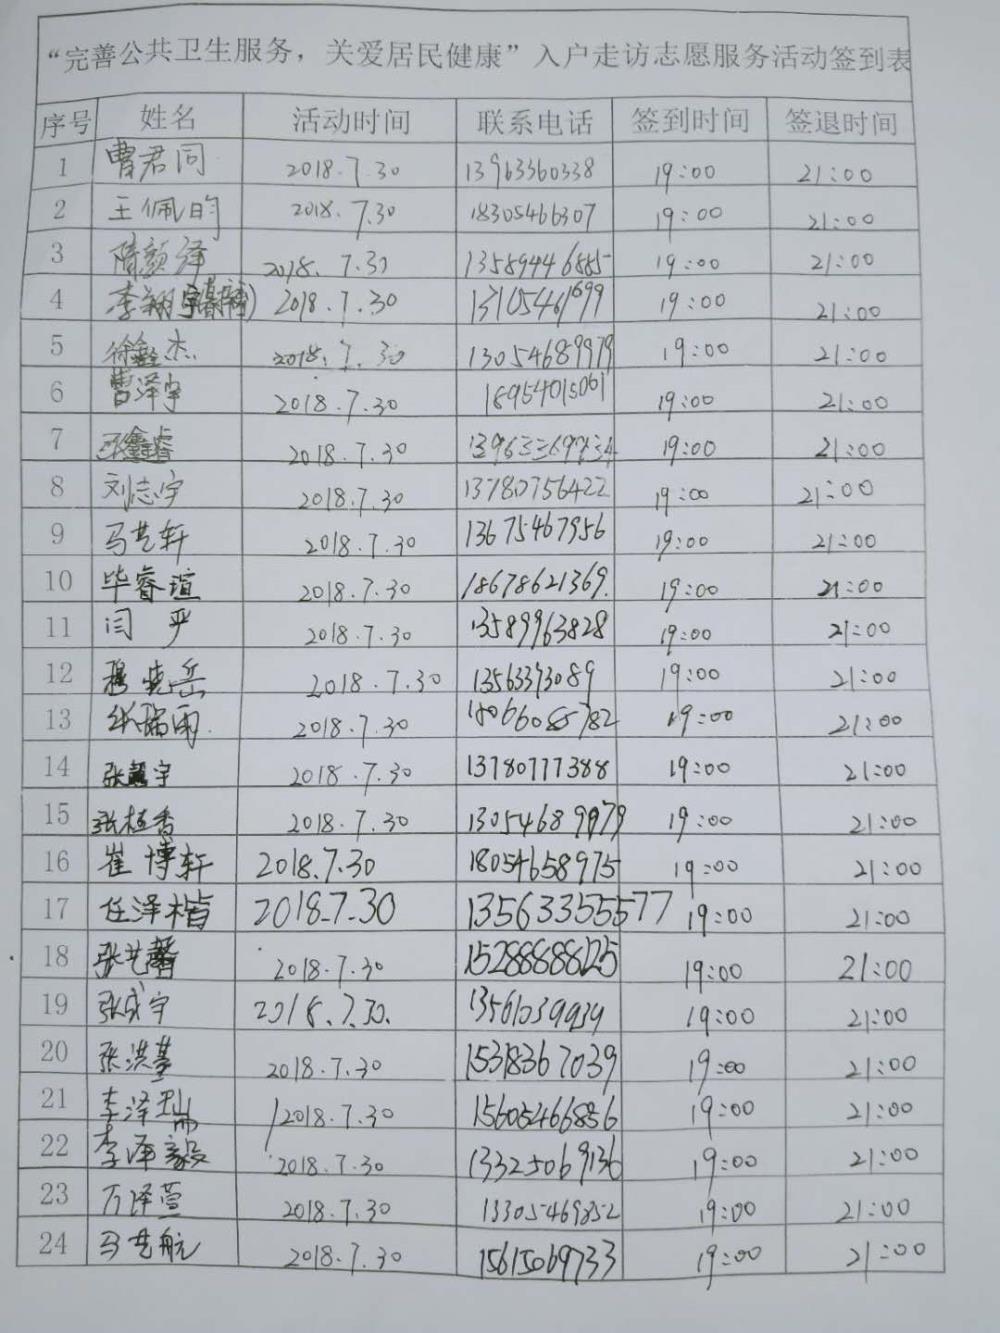 “完善公共卫生服务，关爱居民健康”入户走访志愿服务活动签到表
序号 姓名 活动时间 联系电话 签到时间 签退时间
1 曹君同 2018.7.30 13963360338 19:00 21:00
2 王佩昀 2018.7.30 18305466307 19:00 21:00
3 陈颜泽 2018.7.30 13589446885 19:00 21:00
4 李翔宇 2018.7.30 13105461699 19:00 21:00
5 徐鑫杰 2018.7.30 13054689979 19:00 21:00
6 曹泽宇 2018.7.30 18954015061 19:00 21:00
7 鑫睿 2018.7.30 19:00 21:00
8 刘志宇 2018.7.30 13780756422 19:00 21:00
9 马艺轩 2018.7.30 13675467956 19:00 21:00
10 毕睿瑄 2018.7.30 18678621369. 19:00 21:00
11 闫严 2018.7.30 13589963828 19:00 21:00
12 穆晓岳 2018.7.30 13563373089 19:00 21:00
13 2018.7.30 18066085782 19:00 21:00
14 张宇 2018.7.30 13780777388 19:00 21:00
15 张桂香 2018.7.30 13054689979 19:00 21:00
16 崔博轩 2018.7.30 18054658975 19:00 21:00
17 任泽楷 2018.7.30 13563355577 19:00 21:00
18 张艺馨 2018.7.30 15288888625 19:00 21:00
19 张成宇 2018.7.30. 13561039939 19:00 21:00
20 张洪基 2018.7.30 15318367039 19:00 21:00
21 李泽瑞 2018.7.30 15605466856 19:00 21:00
22 李泽毅 2018.7.30 13325069136 19:00 21:00
23 万泽萱 2018.7.30 13305469852 19:00 21:00
24 马艺航 2018.7.30 15615069733 19:00 21:00